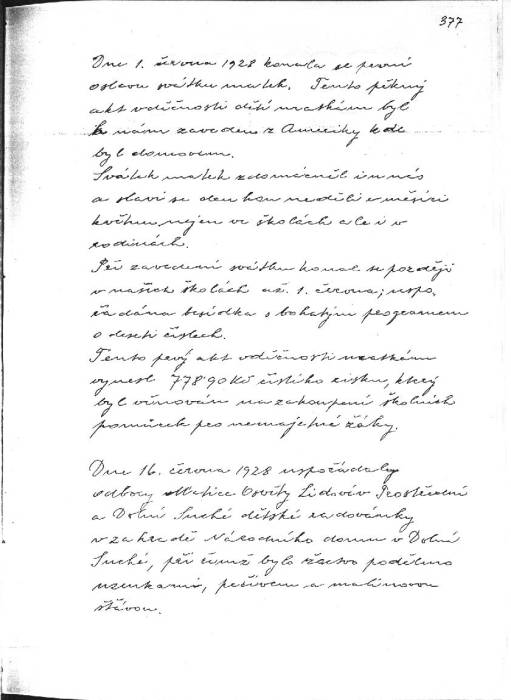 377
Dne 1. června 1928 konala se první
oslava svátku matek. Tento pěkný
akt vděčnosti dětí matkám byl
k nám zaveden z Ameriky kde
byl domovem.
Svátek matek zdomácněl i u nás
a slaví se druhou neděli v měsíci
květnu, nejen ve školách ale i v
rodinách.
Při zavedení svátku konal se později
v našich školách až 1. června; uspo-
řádána besídka s bohatým programem
o deseti číslech.
Tento prvý akt vděčnosti matkám
vynesl 778'90 Kč čistého zisku, který
byl věnován na zakoupení školních
pomůcek pro nemajetné žáky.
Dne 16. června 1928 uspořádaly
odbory Matice Osvěty Lidové v Prostřední
a Dolní Suché dětské radovánky
v zahradě Národního domu v Dolní
Suché, při čemž bylo žactvo poděleno
uzenkami, pečivem a malinovou
šťávou.